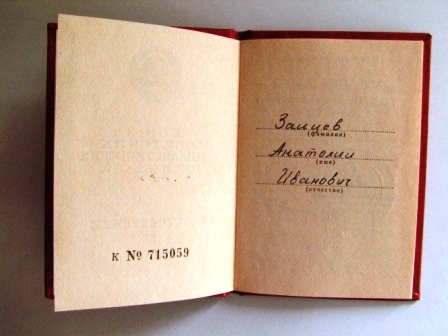 к № 715059
Зайцев
(фамилия)
Анатолий
(имя)
Иванович
(отчество)